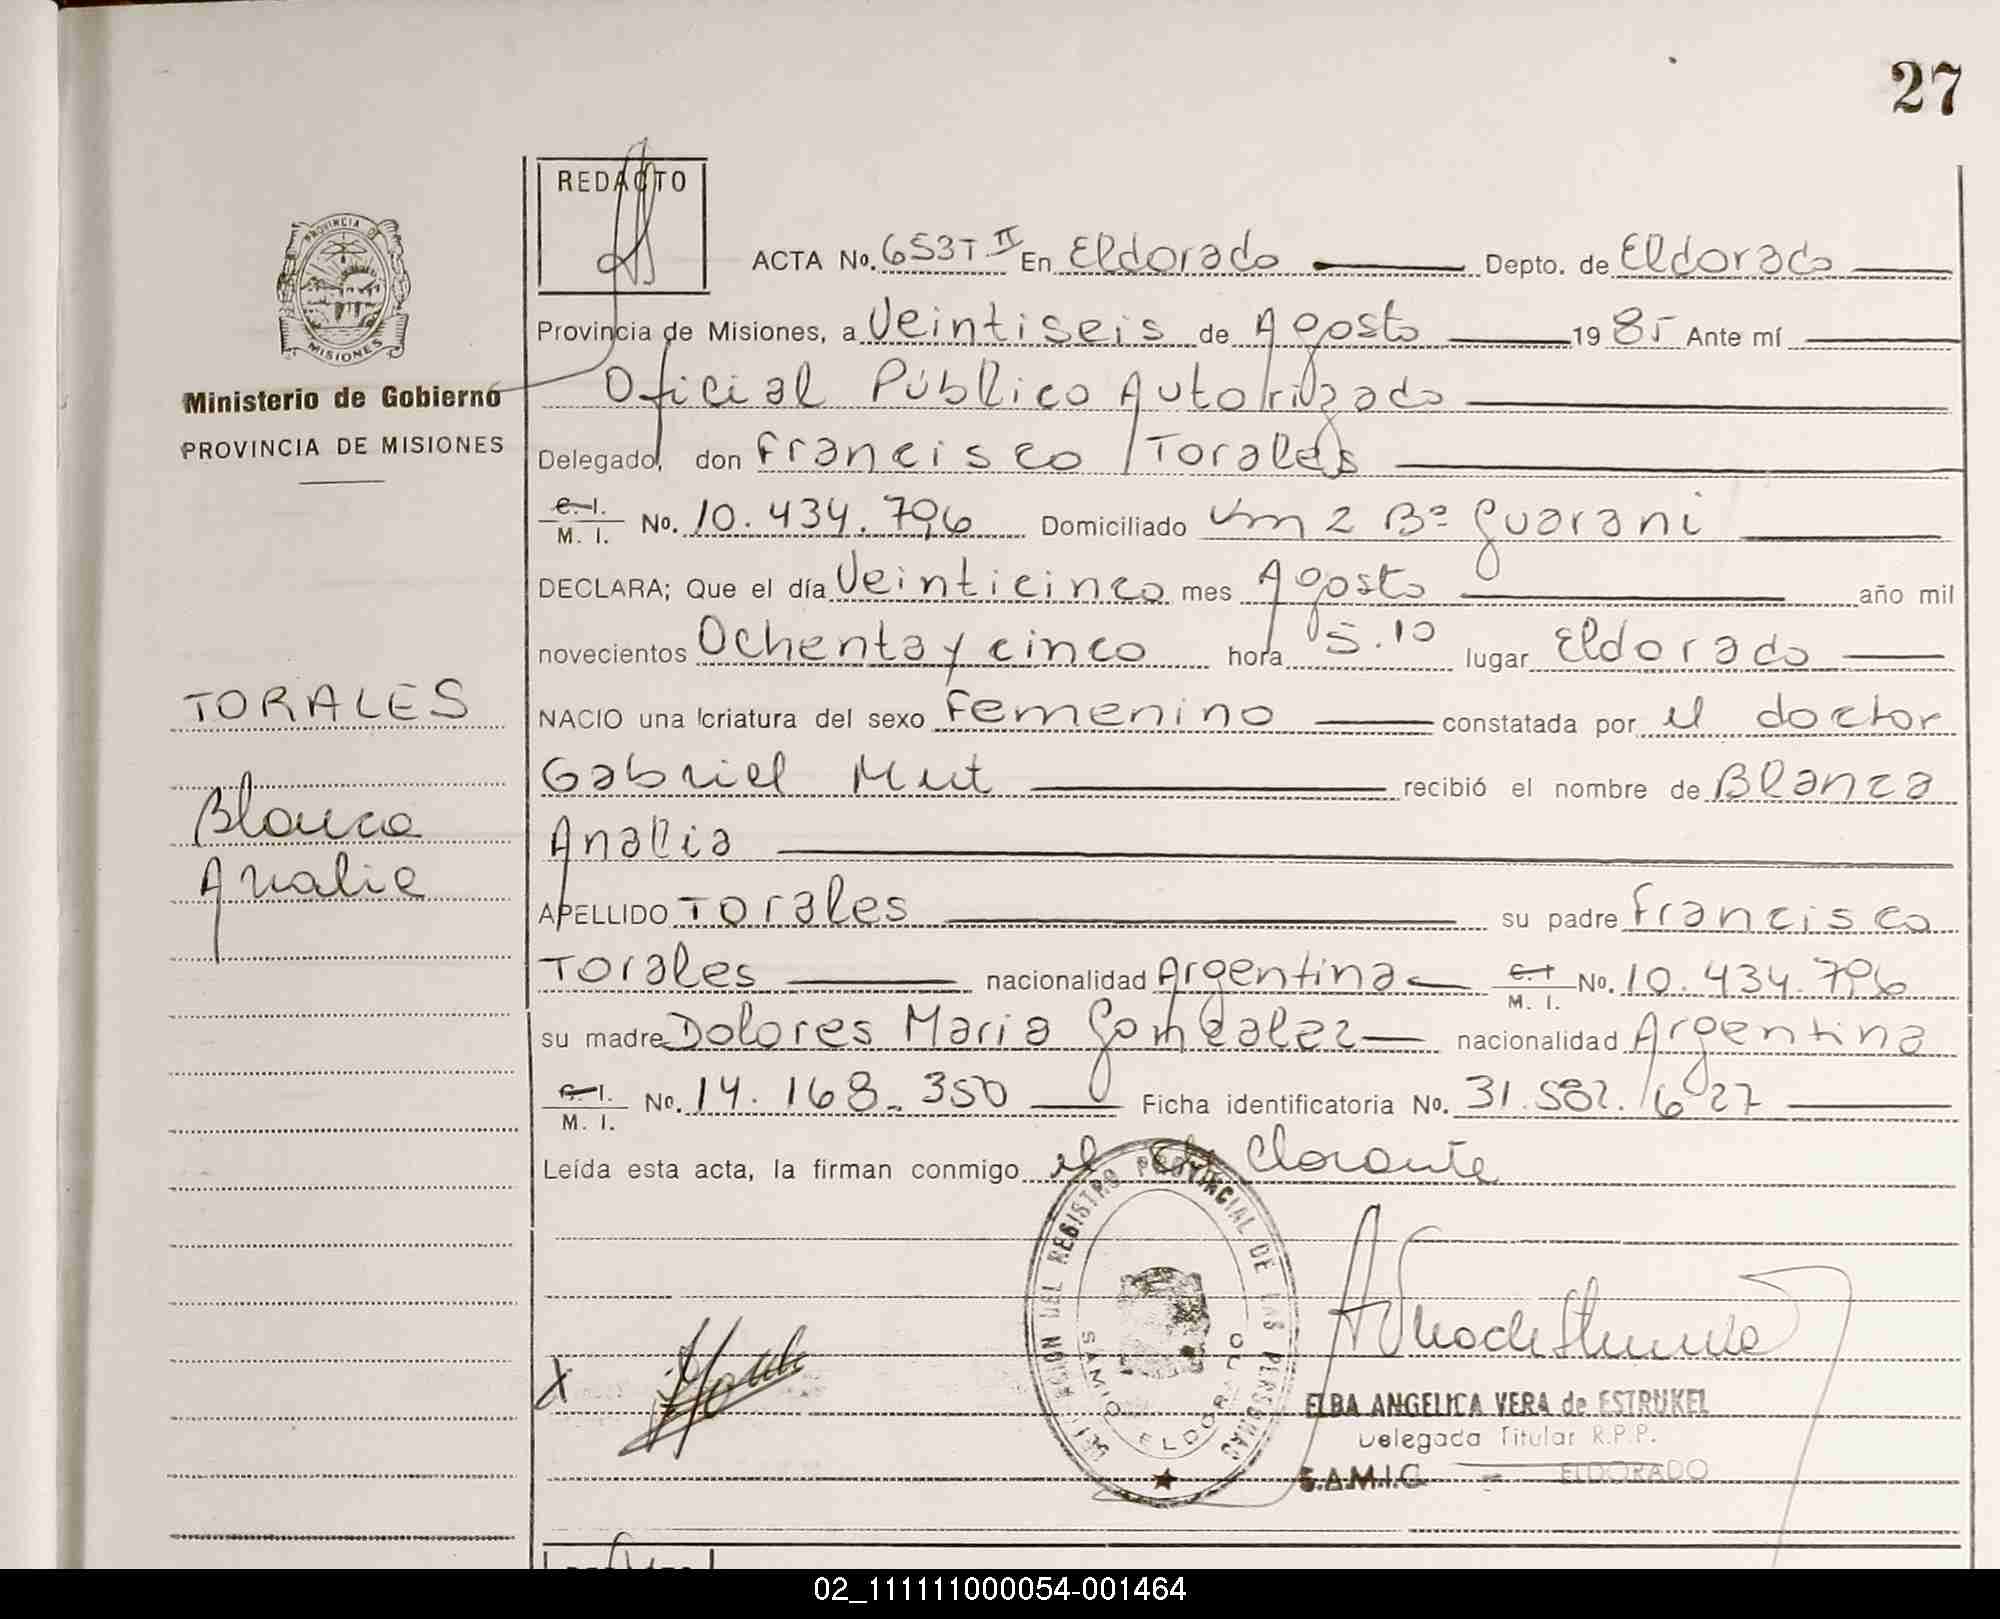 27
REDACTO
ACTA No. 653 T II En Eldorado Depto. de Eldorado
PROVINCIA DE
MISIONES
Provincia de Misiones, a Veintiseis de Agosto 1985 Ante mí
Ministerio de Gobierno
Oficial Público Autorizado
PROVINCIA DE MISIONES
Delegado, don Francisco Torales
C. I.
M. I. No. 10.434.796 Domiciliado Km 2 Bº Guarani
DECLARA; Que el día Veinticinco mes Agosto año mil
novecientos Ochenta y cinco hora 5.10 lugar Eldorado
TORALES
NACIO una criatura del sexo Femenino constatada por el doctor
Gabriel Mut recibió el nombre de Blanca
Blanca
Analia
Analia
APELLIDO Torales su padre Francisco
Torales nacionalidad Argentina C. I. M. I. No. 10.434.796
su madre Dolores Maria Gonzalez nacionalidad Argentina
C. I.
M. I. No. 14.168.350 Ficha identificatoria No. 31.582.627
Leída esta acta, la firman conmigo el declarante
DEL REGISTRO PROVINCIAL DE LAS PERSONAS
SAMIC ELDORADO
X
ELBA ANGELICA VERA de ESTRUKEL
Delegada Titular R.P.P.
S.A.M.I.C. - ELDORADO
02_111111000054-001464